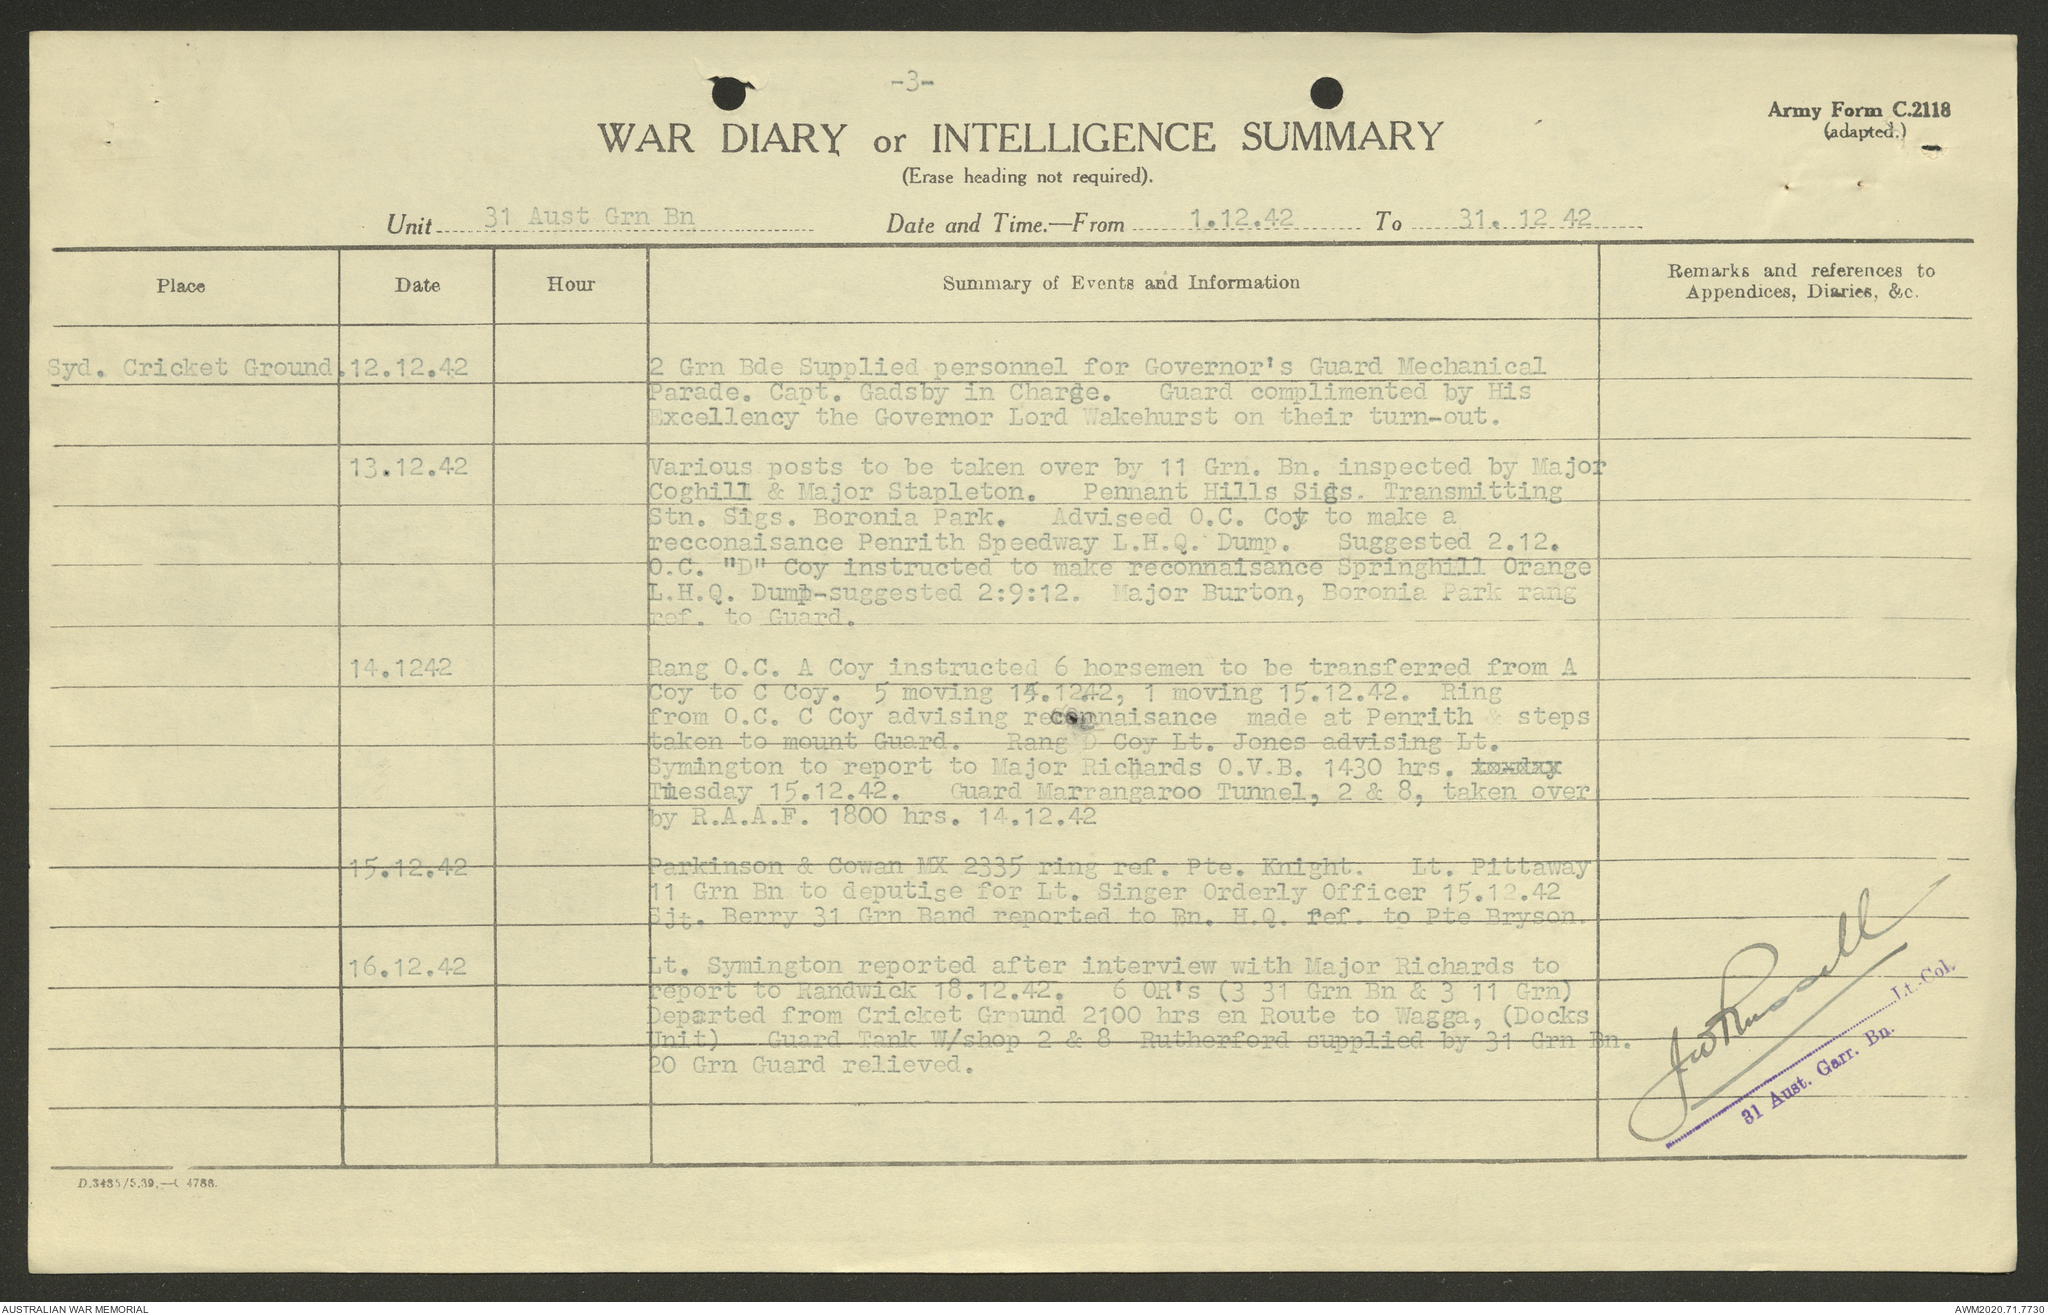 -3-
Army Form C.2118
(adapted.)
WAR DIARY or INTELLIGENCE SUMMARY
(Erase heading not required).
Unit 31 Aust Grn Bn Date and Time.—From 1.12.42 To 31. 12 42
Place Date Hour Summary of Events and Information Remarks and references to
Appendices, Diaries, &c.
Syd. Cricket Ground. 12.12.42 2 Grn Bde Supplied personnel for Governor's Guard Mechanical
Parade. Capt. Gadsby in Charge. Guard complimented by His
Excellency the Governor Lord Wakehurst on their turn-out.
13.12.42 Various posts to be taken over by 11 Grn. Bn. inspected by Major
Coghill & Major Stapleton. Pennant Hills Sigs. Transmitting
Stn. Sigs. Boronia Park. Adviseed O.C. Coy to make a
recconaisance Penrith Speedway L.H.Q. Dump. Suggested 2.12.
O.C. "D" Coy instructed to make reconnaisance Springhill Orange
L.H.Q. Dump-suggested 2:9:12. Major Burton, Boronia Park rang
ref. to Guard.
14.1242 Rang O.C. A Coy instructed 6 horsemen to be transferred from A
Coy to C Coy. 5 moving 14.1242, 1 moving 15.12.42. Ring
from O.C. C Coy advising reconnaisance made at Penrith & steps
taken to mount Guard. Rang D Coy Lt. Jones advising Lt.
Symington to report to Major Richards O.V.B. 1430 hrs. today
Tuesday 15.12.42. Guard Marrangaroo Tunnel, 2 & 8, taken over
by R.A.A.F. 1800 hrs. 14.12.42
15.12.42 Parkinson & Cowan MX 2335 ring ref. Pte. Knight. Lt. Pittaway
11 Grn Bn to deputise for Lt. Singer Orderly Officer 15.12.42
Sjt. Berry 31 Grn Band reported to Bn. H.Q. ref. to Pte Bryson.
16.12.42 Lt. Symington reported after interview with Major Richards to
report to Randwick 18.12.42. 6 OR's (3 31 Grn Bn & 3 11 Grn)
Departed from Cricket Ground 2100 hrs en Route to Wagga, (Docks
Unit) Guard Tank W/shop 2 & 8 Rutherford supplied by 31 Grn Bn.
20 Grn Guard relieved.
JW Russell
Lt.-Col.
31 Aust. Garr. Bn.
D.3435/5.39.—C 4788.
AUSTRALIAN WAR MEMORIAL AWM2020.71.7730